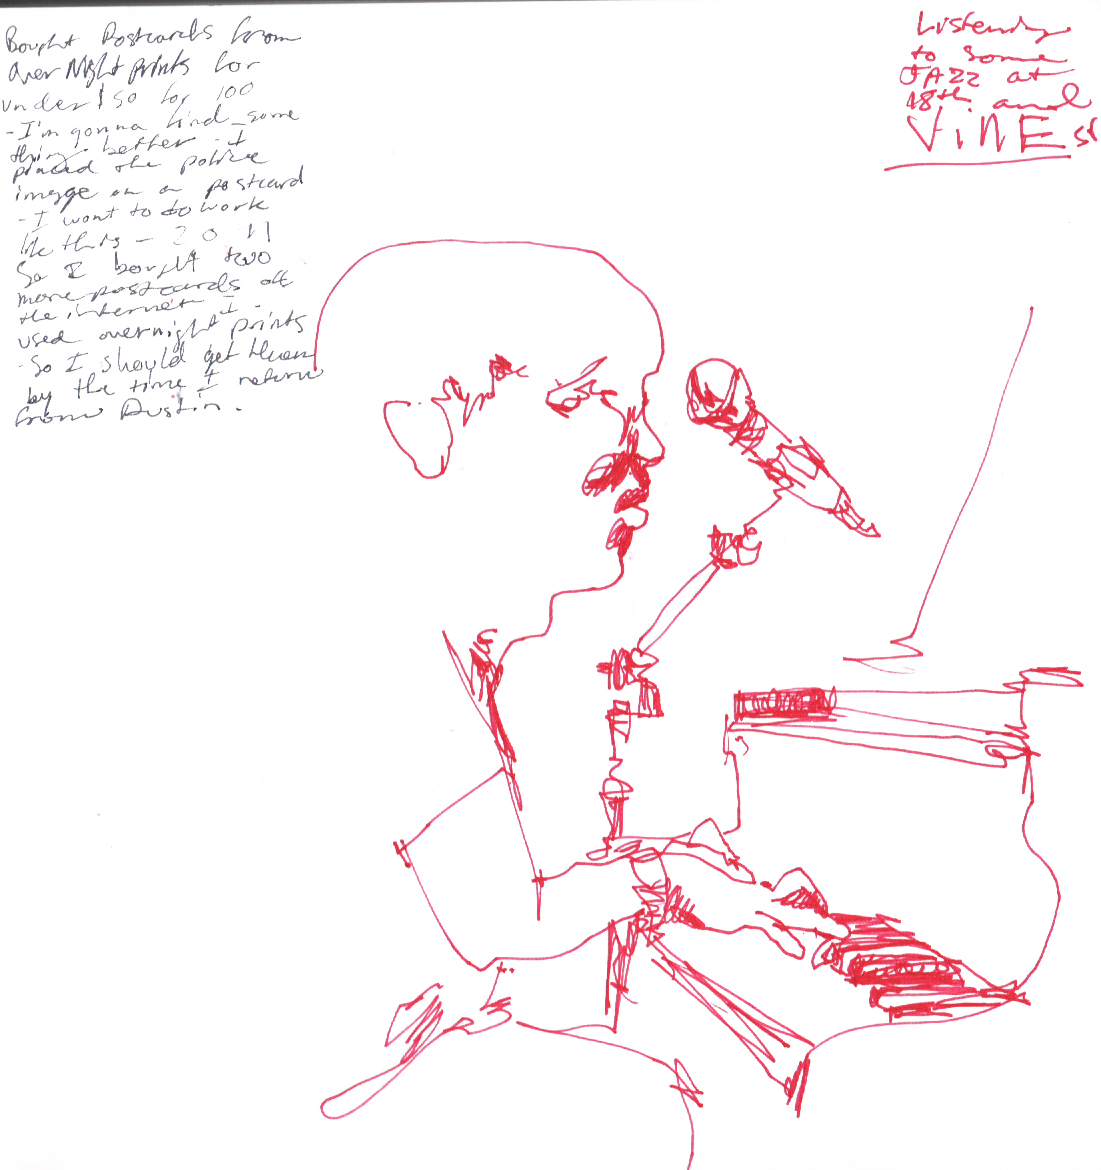 Bought Postcards from
Over Night prints for
under $50 for 100
- I'm gonna find some
thing better - I
placed the police
image on a postcard
- I want to do work
like this - 2011
So I bought two
more postcards off
the internet I -
used overnight prints
- So I should get them
by the time I return
from Austin.
Listening
to some
JAZZ at
18th and
ViNE St